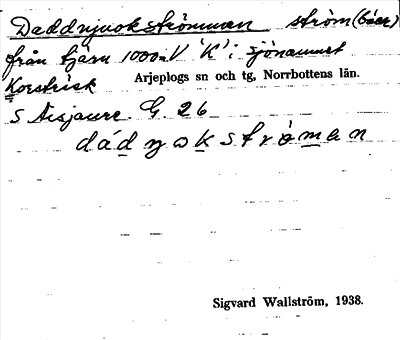 Daddnjuokströmmen ström (bäck)
från tjärn 1000 m V 'K' i sjönamnet
Korsträsk
Arjeplogs sn och tg, Norrbottens län.
S Aisjaure. G. 26
dádn̥okströmen
Sigvard Wallström, 1938.